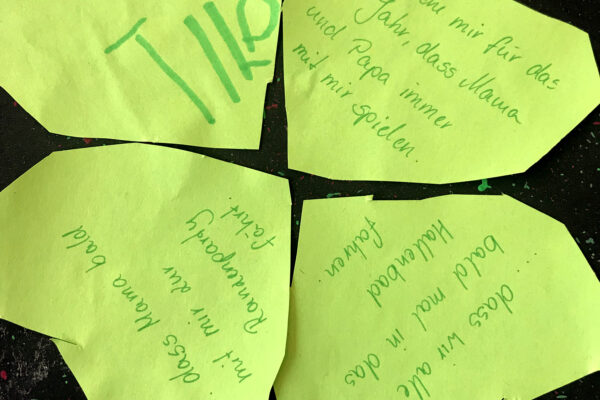 mir für das
Jahr, dass Mama
und Papa immer
mit mir spielen.
dass Mama bald
mit mir zur
Ranzenparty
fährt
dass wir alle
bald mal in das
Hallenbad
fahren